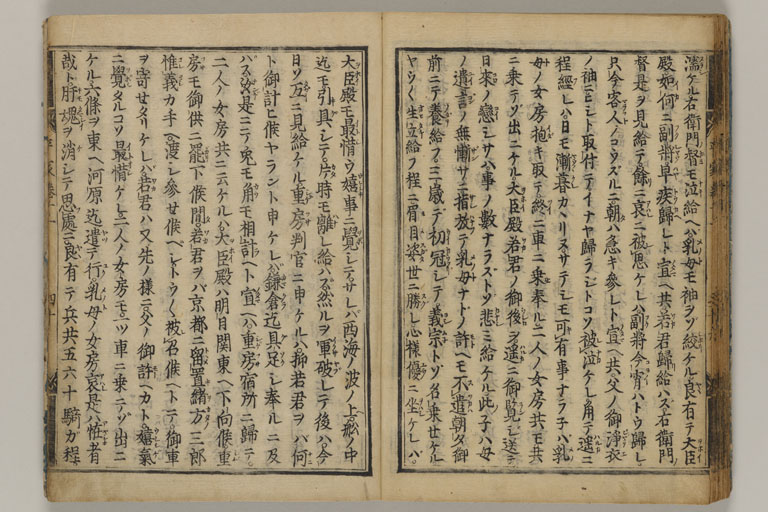 濡ケル右衛門督モ泣給ヘハ乳母モ袖ヲゾ絞ケル良有テ大臣
殿如何ニ副將早疾歸レト宣ヘ共若君歸給ハズ右衛門
督是ヲ見給テ餘ニ哀ニ被思ケレハ副將今宵ハトウ歸レ
只今客人ノコウズルニ朝ハ急キ參レト宣ヘ共父ノ御淨衣
ノ袖ニヒシト取付テイナヤ歸ラシトコソ被泣ケレ角テ遥ニ
程經レハ日モ漸暮カヽリヌサテシモ可有事ナラ子ハ乳
母ノ女房抱キ取テ終ニ車ニ乗奉ル二人ノ女房共モ共
ニ乗テゾ出ニケル大臣殿若君ノ御後ヲ遥ニ御覧シ送テ
日來ノ戀シサハ事ノ數ナラズトゾ悲ミ給ケル此子ハ母
ノ遺言ノ無慚サニ指放テ乳母ナドノ許ヘモ不遣朝夕御
前ニテ養給フ三歳テ初冠シテ義宗トゾ名乗セケル
ヤウヤク生立給フ程ニ眉目姿世ニ勝レ心樣優ニ坐ケレハ
大臣殿モ最惜ウ嬉事ニ覺シテサレバ西海ノ波ノ上舩ノ中
迄モ引具シテ片時モ離レ給ハズ然ルヲ軍破レテ後ハ今
日ゾ互ニ見給ケル重房判官ニ申ケルハ抑若君ヲバ何
ト御計ヒ候ヤラント申ケレバ鎌倉迄具足シ奉ルニ及
バズ汝是ニテ兎モ角モ相計ヘト宣ヘハ重房宿所ニ歸テ
二人ノ女房共ニ云ケルハ大臣殿ハ明日關東ヘ下向候重
房モ御供ニ罷下候間若君ヲバ京都ニ留置緒方三郎
惟義カ手ヘ渡シ參セ候ヘシトウ〱被召候ヘトテ御車
ヲ寄セタリケレハ若君ハ又先ノ樣ニ父ノ御許ヘカト嬉氣
ニ覺タルコソ最惜ケレ二人ノ女房モ一ツ車ニ乗テゾ出ニ
ケル六條ヲ東ヘ河原迄遣テ行乳母ノ女房哀是ハ恠者
哉ト肝魂ヲ消シテ思處ニ良有テ兵共五六十騎ガ程